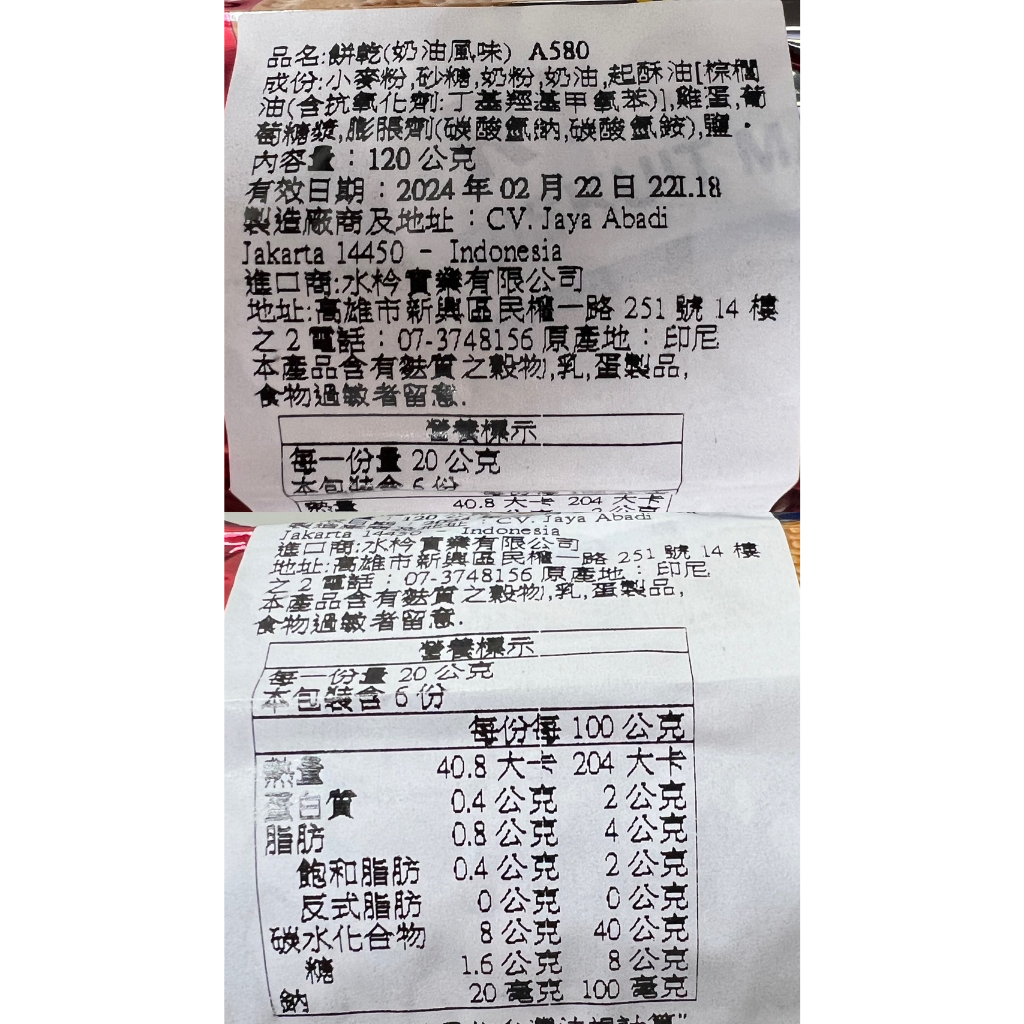 品名:餅乾(奶油風味) A580
成份:小麥粉,砂糖,奶粉,奶油,起酥油[棕櫚
油(含抗氧化劑:丁基羥基甲氧苯)],雞蛋,葡
萄糖漿,膨脹劑(碳酸氫鈉,碳酸氫銨),鹽.
內容量:120 公克
有效日期:2024 年 02 月 22 日 221.18
製造廠商及地址:CV. Jaya Abadi
Jakarta 14450 - Indonesia
進口商:水枔實業有限公司
地址:高雄市新興區民權一路 251 號 14 樓
之 2 電話:07-3748156 原產地:印尼
本產品含有麩質之穀物,乳,蛋製品,
食物過敏者留意.
營養標示
每一份量 20 公克
本包裝含 6 份
熱量 40.8 大卡 204 大卡
CV. Jaya Abadi
Jakarta 14450 - Indonesia
進口商:水枔實業有限公司
地址:高雄市新興區民權一路 251 號 14 樓
之 2 電話:07-3748156 原產地:印尼
本產品含有麩質之穀物,乳,蛋製品,
食物過敏者留意.
營養標示
每一份量 20 公克
本包裝含 6 份
每份每 100 公克
熱量 40.8 大卡 204 大卡
蛋白質 0.4 公克 2 公克
脂肪 0.8 公克 4 公克
飽和脂肪 0.4 公克 2 公克
反式脂肪 0 公克 0 公克
碳水化合物 8 公克 40 公克
糖 1.6 公克 8 公克
鈉 20 毫克 100 毫克